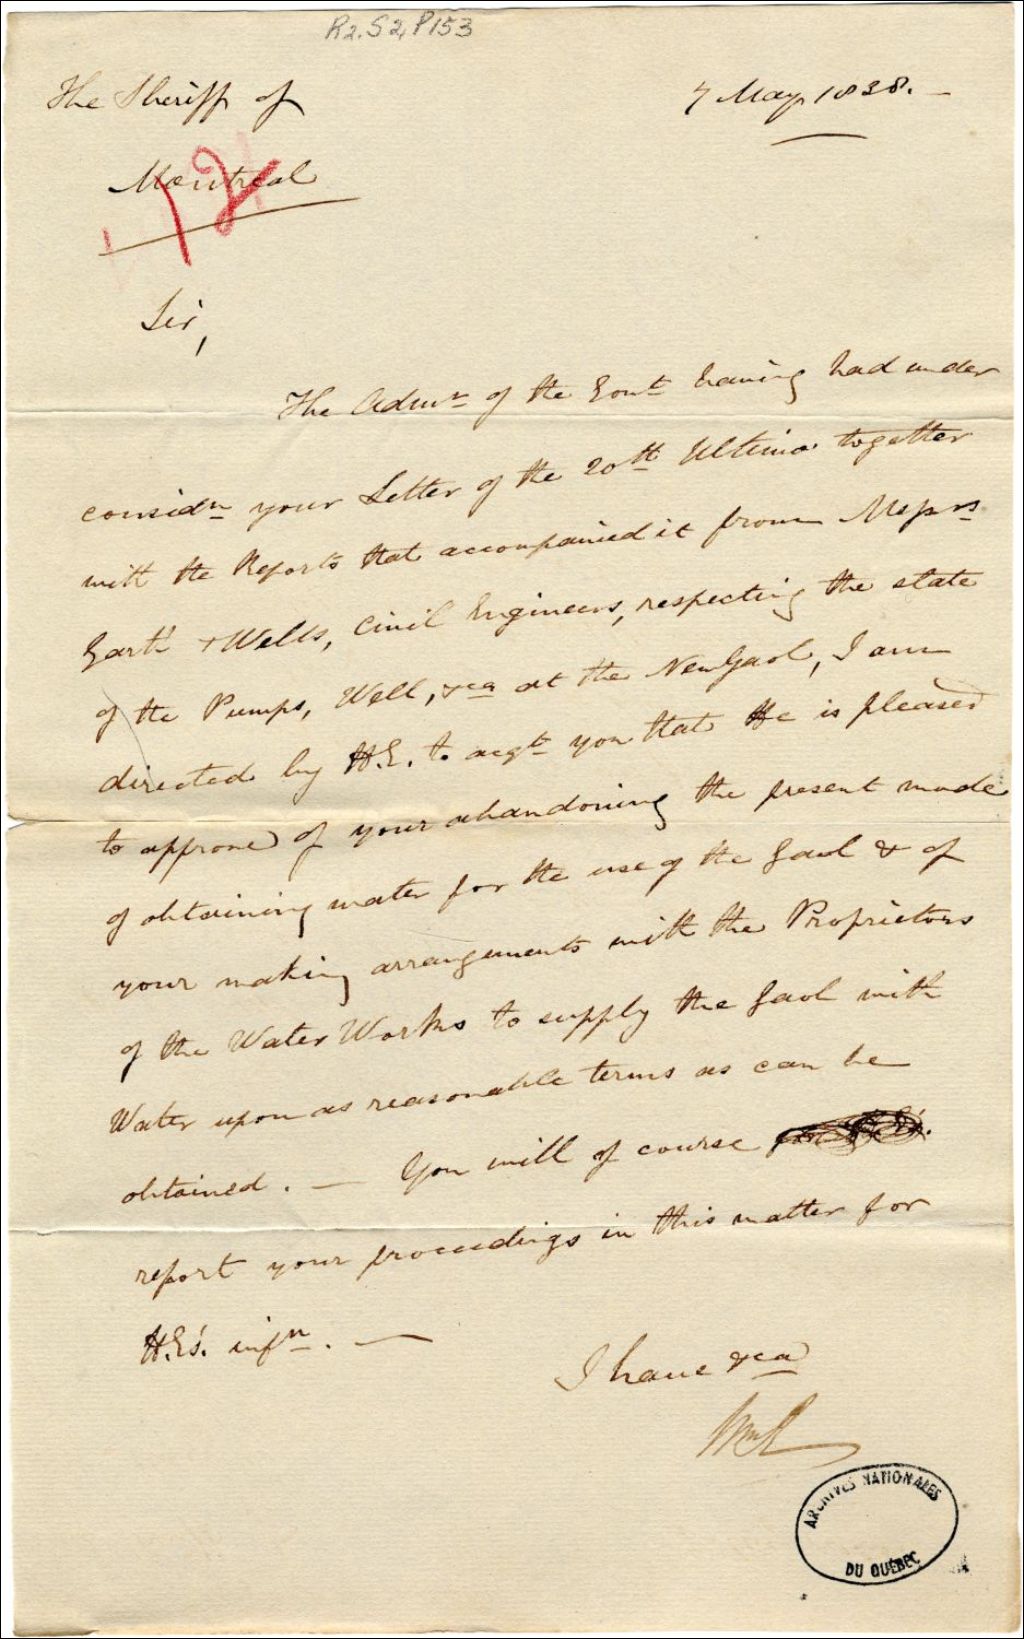 R2.S2,P153
The Sheriff of
7 May 1838. —
Montreal
Sir,
The Admr of the Govt having had under
considn your Letter of the 20th Ultimo together
with the Reports that accompanied it from Messrs
Garth & Wells, Civil Engineers, respecting the state
of the Pumps, Well, &ca at the New Gaol, I am
directed by H.E. to acqt you that He is pleased
to approve of your abandoning the present mode
of obtaining water for the use of the Gaol & of
your making arrangements with the Proprietors
of the Water Works to supply the Gaol with
Water upon as reasonable terms as can be
obtained. — You will of course
report your proceedings in this matter for
H.E's. infn. —
I have &ca
ARCHIVES NATIONALES
DU QUÉBEC